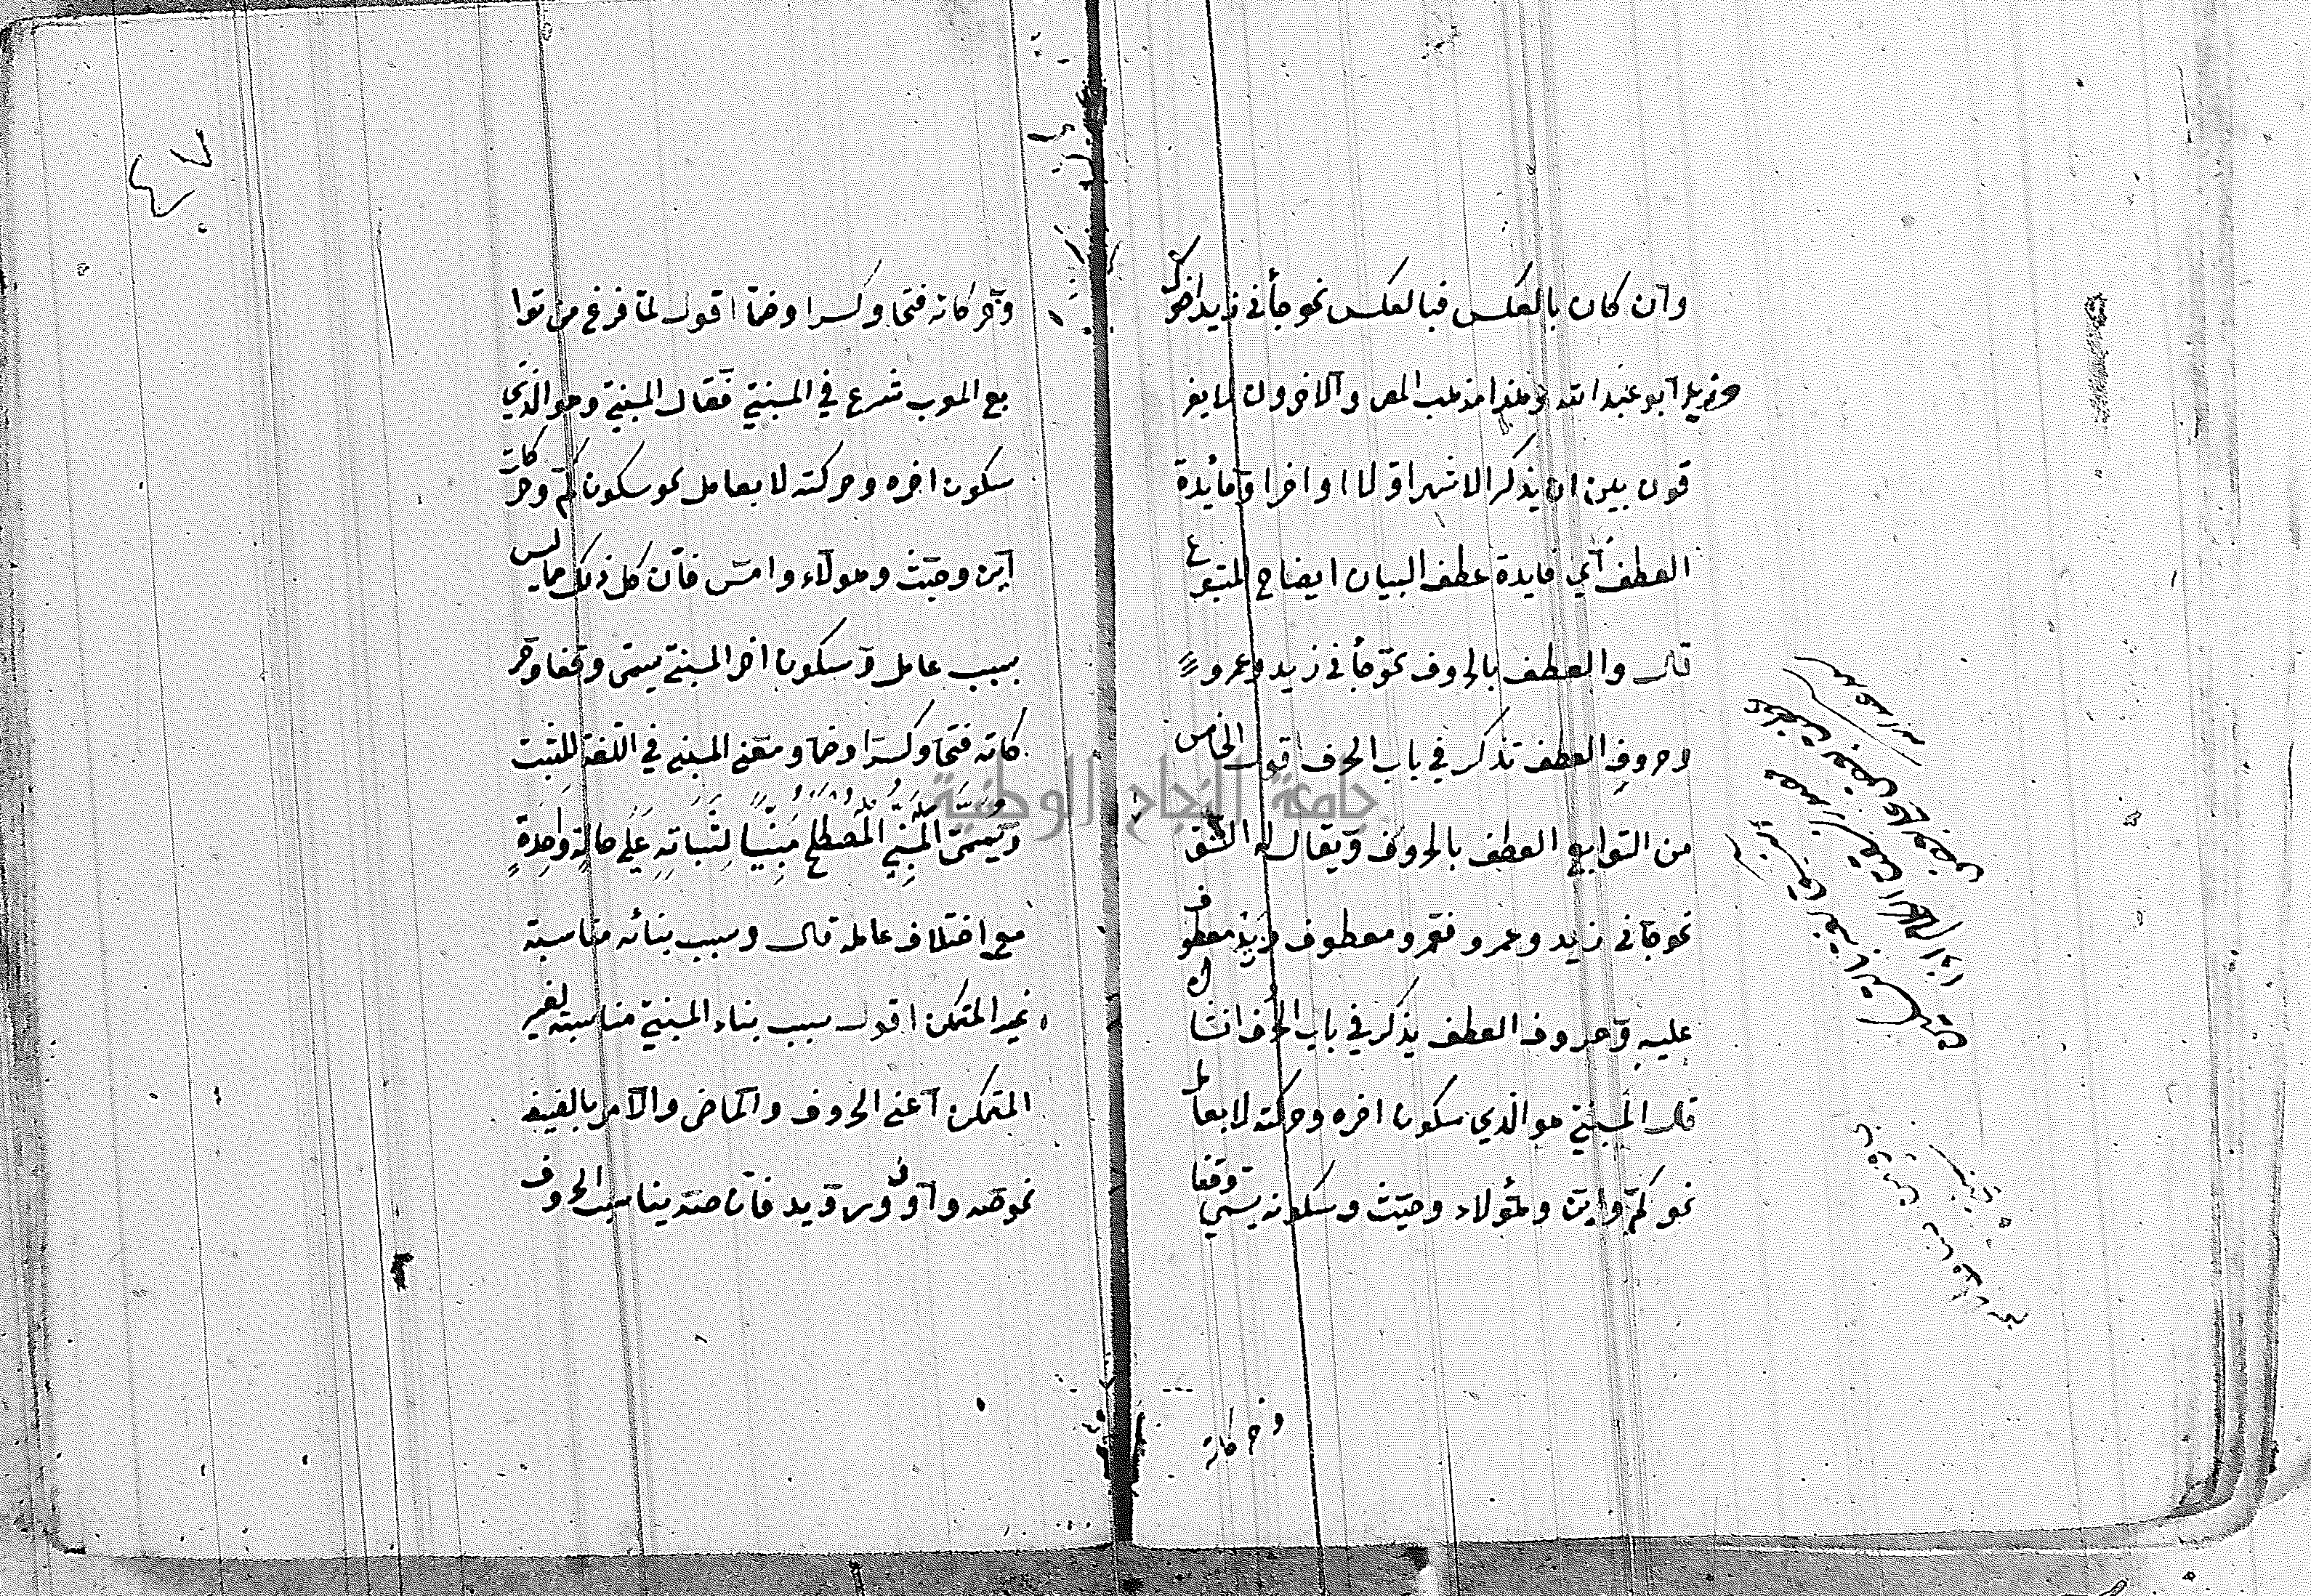 وان كان بالعكس فبالعكس نحو جأنى زيد اخوك
وزيد ابو عبد الله وهذا مذهب المص والاخرون لا يفر
قون بين ان يذكر الاشهر اوّلا او اخرا وفائدة
العطف اي فايدة عطف البيان ايضاح المتبوع
قال والعطف بالحروف نحو جأنى زيد وعمرو
وحروف العطف تذكر في باب الحرف اقول الخامس
من التوابع العطف بالحروف ويقال له النسق
نحو جانى زيد وعمرو فعمرو معطوف وزيد معطوف
عليه وحروف العطف يذكر في باب الحرف انشا الله
قال المبنيّ هو الذي سكون اخره وحركته لا بعامل
نحو كم واين وهؤلاء وحيث وسكونه يسمي وقفا
وحركاته
٤٧
وحركاته فتحا وكسرا وضمّا اقول لمّا فرغ من توا
بع المعرب شرع في المبنيّ فقال المبنيّ وهو الذي
سكون اخره وحركته لا بعامل نحو سكون كم وحركات
اين وحيث وهولاء وامس فان كل ذلك ما ليس
بسبب عامل وسكون اخر المبنيّ يسمّى وقفا وحر
كاته فتحا وكسرا وضمّا ومعني المبني في اللغة المثبت
وَيُسَمَّى المَبْنِيُّ المُصْطَلَحُ مَبْنِيًّا لِثَبَاتِهِ عَلَى حالةٍ واحِدَةٍ
مع اختلاف عامله قال وسبب بنائه مناسبة
غير المتمكن اقول سبب بناء المبنيّ مناسبته لغير
المتمكن اعني الحروف والماضى والامر بالصيغة
نحو صه واو ورويد فان صه يناسب الحروف
جامعة النجاح الوطنية